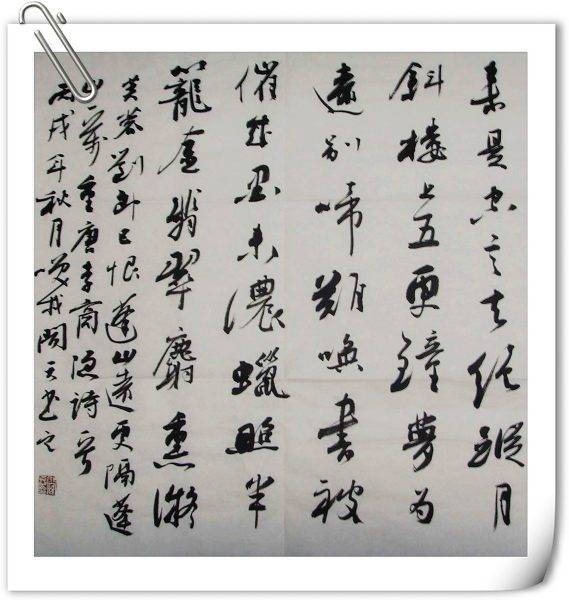 来是空言去絕蹤月
斜楼上五更鐘夢为
遠别啼難唤書被
催成墨未濃蠟照半
籠金翡翠麝熏微
芙蓉劉郎已恨蓬山遠更隔蓬
山一萬重唐李商隐詩
丙戌年秋月